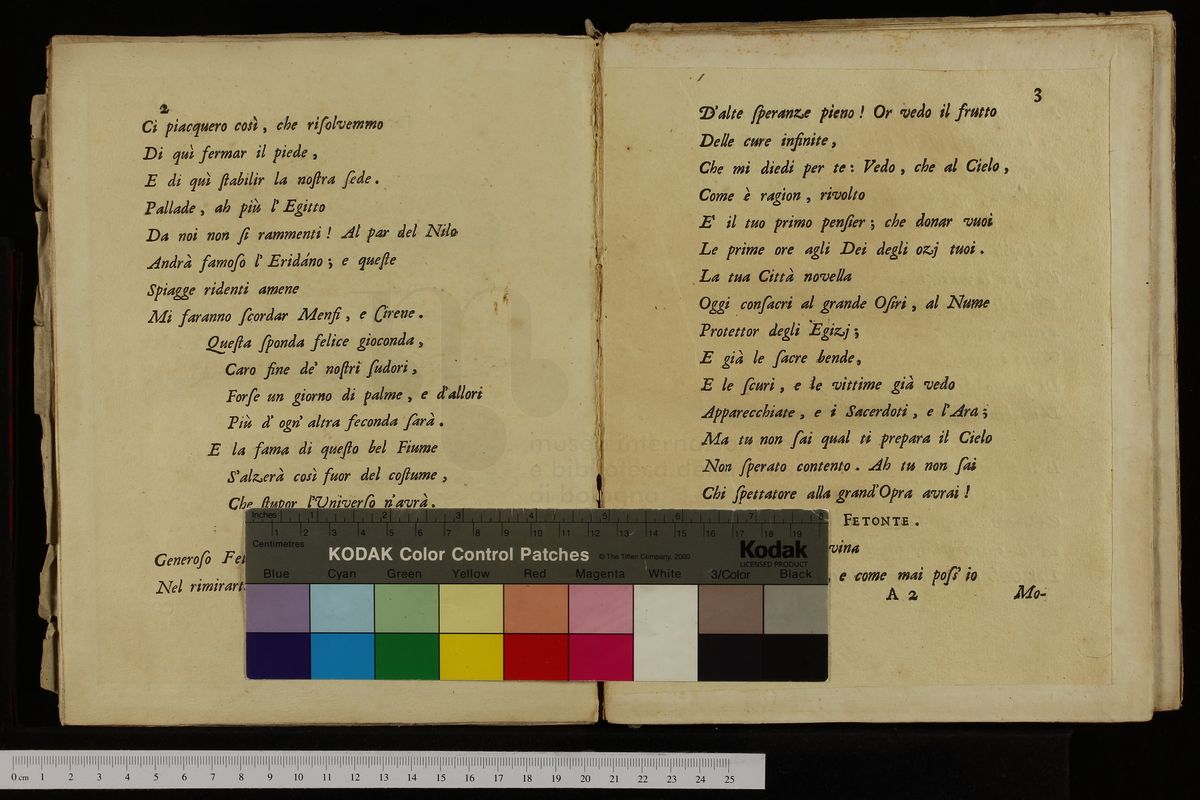 2
Ci piacquero così, che riſolvemmo
Di quì fermar il piede,
E di quì ſtabilir la noſtra ſede.
Pallade, ah più l' Egitto
Da noi non ſi rammenti! Al par del Nilo
Andrà famoſo l' Eridáno; e queſte
Spiagge ridenti amene
Mi faranno ſcordar Menfi, e Cirene.
Queſta ſponda felice gioconda,
Caro fine de' noſtri ſudori,
Forſe un giorno di palme, e d'allori
Più d' ogn' altra feconda ſarà.
E la fama di queſto bel Fiume
S'alzerà così fuor del coſtume,
Che ſtupor l'Univerſo n'avrà.
Generoſo
Nel rimirart
3
D'alte ſperanze pieno! Or vedo il frutto
Delle cure infinite,
Che mi diedi per te: Vedo, che al Cielo,
Come è ragion, rivolto
E' il tuo primo penſier; che donar vuoi
Le prime ore agli Dei degli ozj tuoi.
La tua Città novella
Oggi conſacri al grande Oſiri, al Nume
Protettor degli Egizj;
E già le ſacre bende,
E le ſcuri, e le vittime già vedo
Apparecchiate, e i Sacerdoti, e l'Ara;
Ma tu non ſai qual ti prepara il Cielo
Non ſperato contento. Ah tu non ſai
Chi ſpettatore alla grand'Opra avrai!
FETONTE.
vina
, e come mai poſſ' io
A 2 Mo-
Inches 1 2 3 4 5 6 7 8
1 2 3 4 5 6 7 8 9 10 11 12 13 14 15 16 17 18 19
Centimetres
KODAK Color Control Patches © The Tiffen Company, 2000 Kodak
LICENSED PRODUCT
Blue Cyan Green Yellow Red Magenta White 3/Color Black
0 cm 1 2 3 4 5 6 7 8 9 10 11 12 13 14 15 16 17 18 19 20 21 22 23 24 25
museo interna
e biblioteca de
di bologna